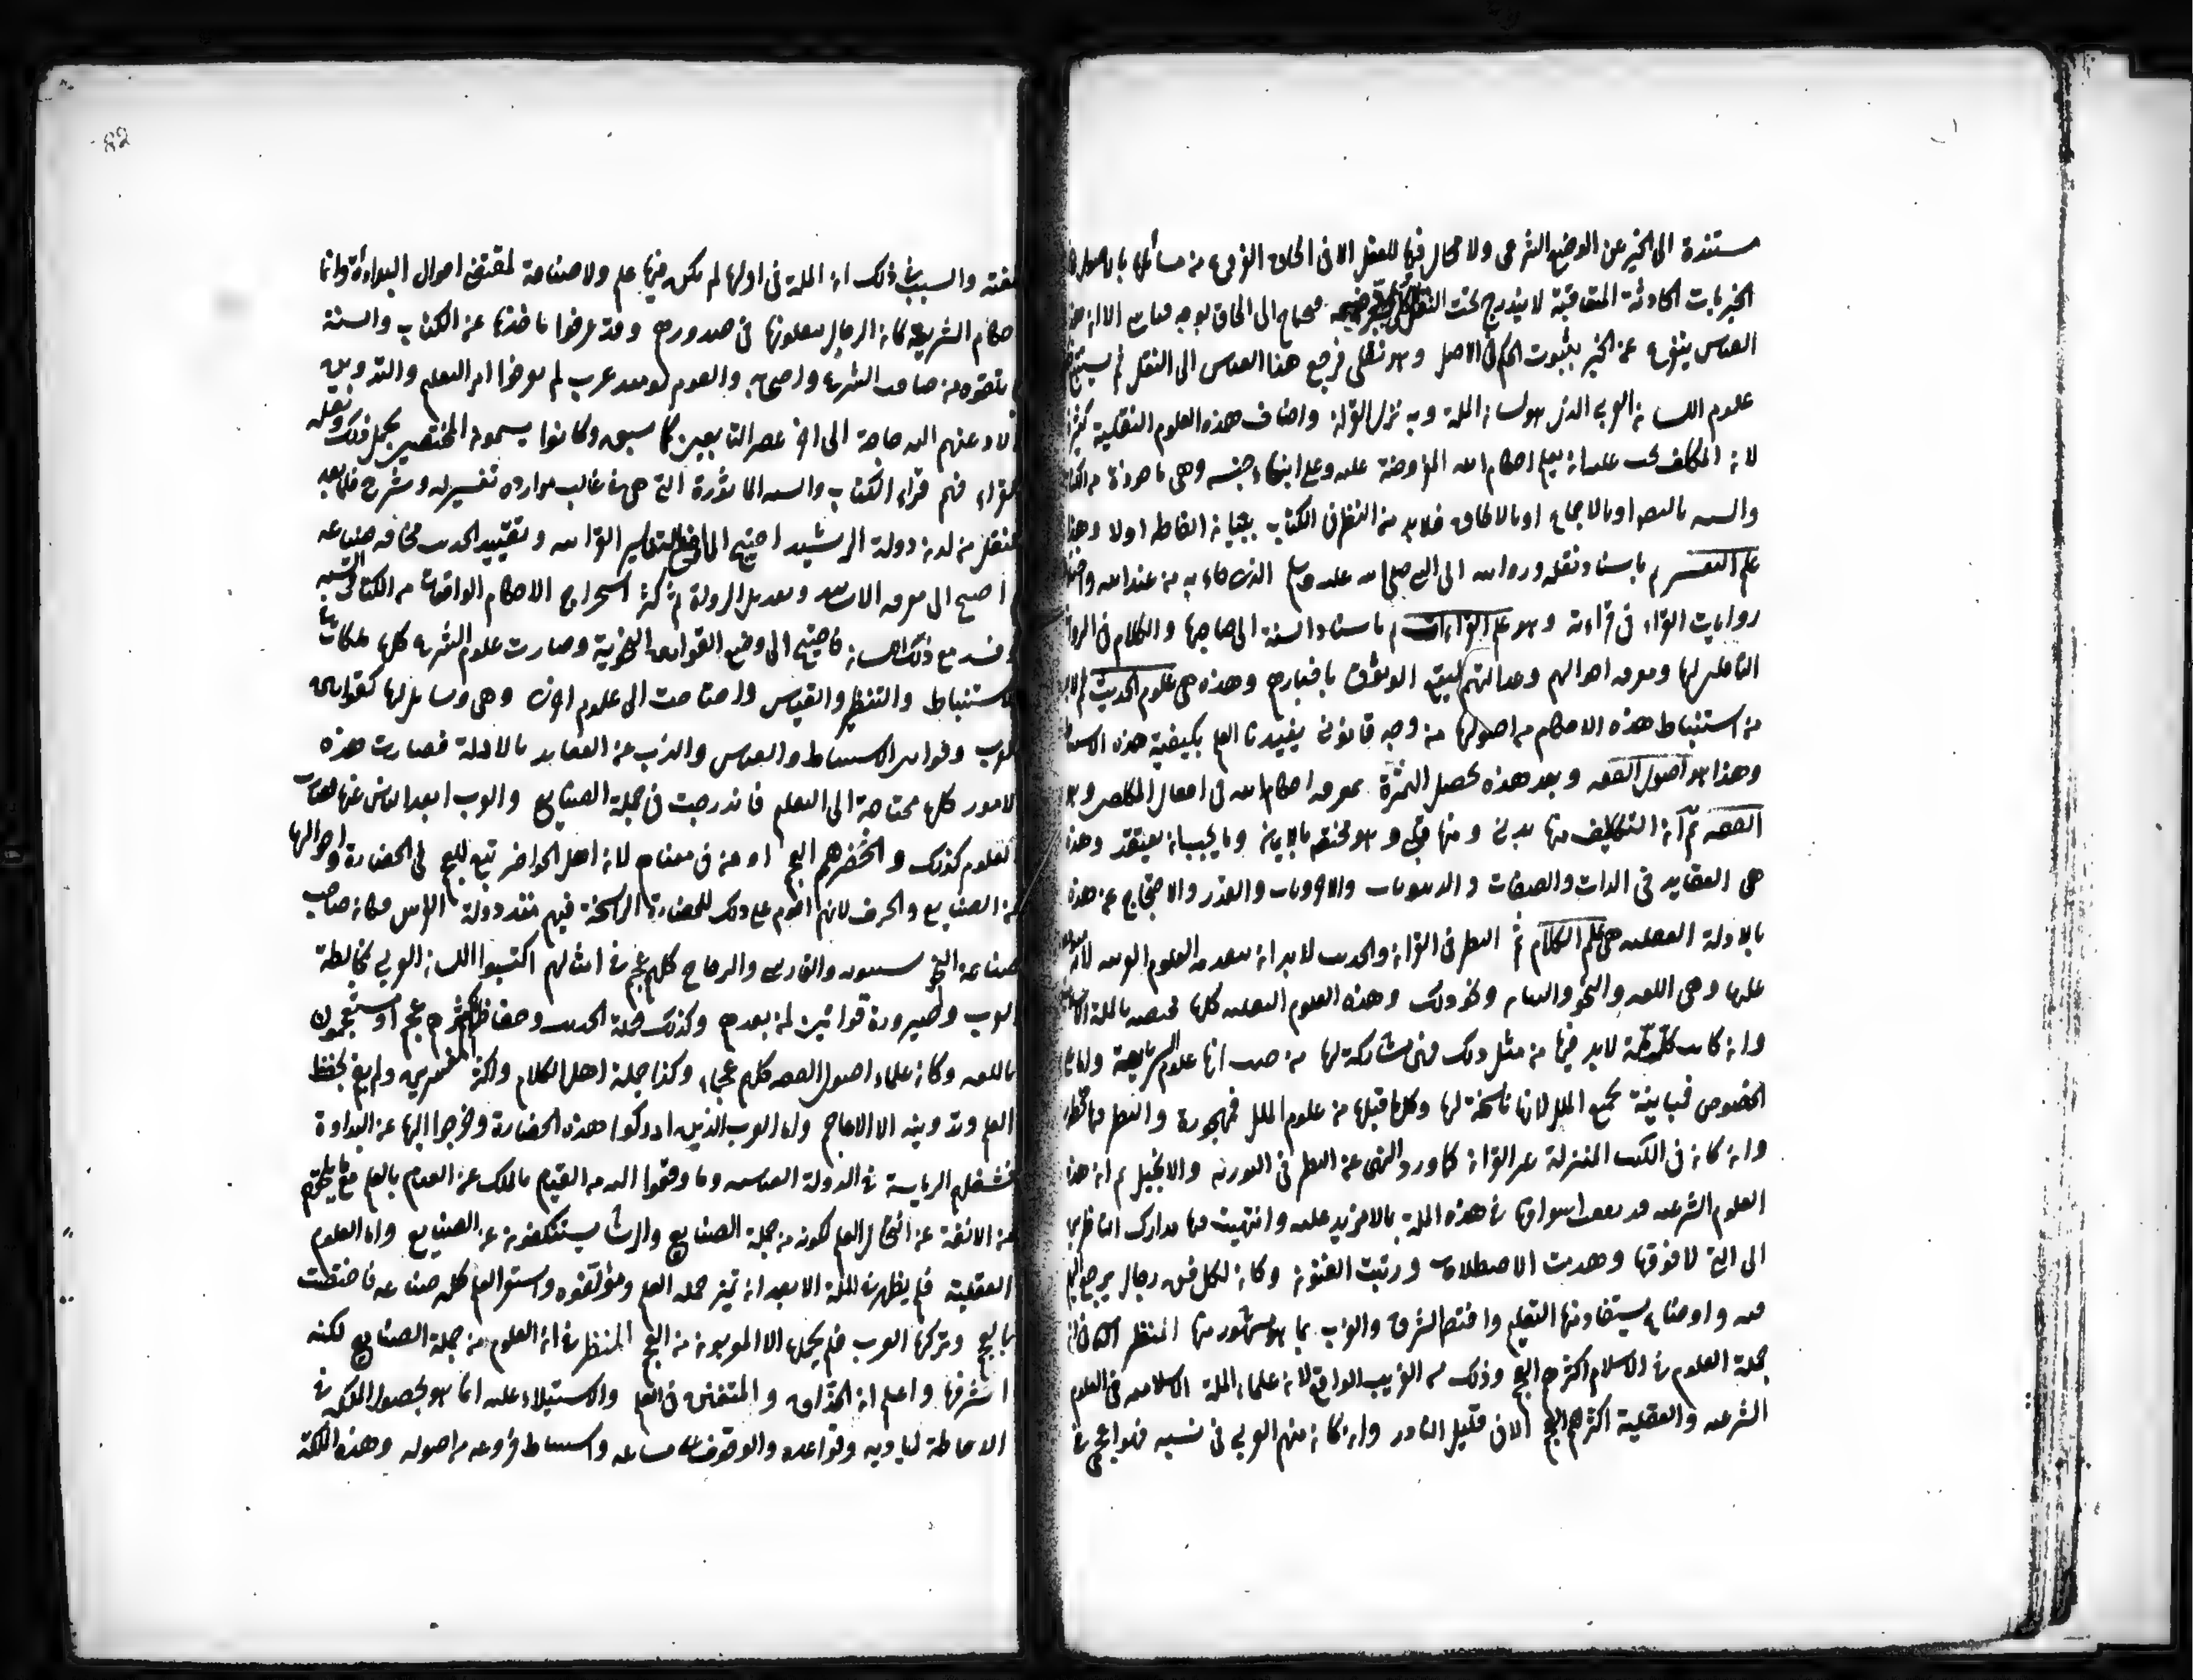 مستندة الى الخبر عن الوضع الشرعى ولا مجال فيها للعقل الا فى الحاق الفروع من مسائلها بالاصول لان
الجزئيات الحادثة المتعاقبة لا يندرج تحت النقل فيحتاج الى الحاق بوجه قياسى الا ان هذا
القياس يتفرع عن الخبر بثبوت الحكم فى الاصل وهو نقلى فرجع هذا القياس الى النقل ثم يستتبع
علوم اللسان العربى الذى هو لسان الملة وبه نزل القران واصناف هذه العلوم النقلية كثيرة
لان المكلف يجب عليه ان يعلم احكام الله المفروضة عليه وعلى ابناء جنسه وهى ماخوذة من الكتاب
والسنة بالنص او بالاجماع او بالالحاق فلابد من النظر فى الكتاب ببيان الفاظه اولا وهذا
علم التفسير ثم باسناد نقله وروايته الى النبى صلى الله عليه وسلم الذى جاء به من عند الله واختلاف
روايات القراء فى قراءته وهو علم القراءات ثم باسناد السنة الى صاحبها والكلام فى الرواة
الناقلين لها ومعرفة احوالهم وعدالتهم ليقع الوثوق باخبارهم وهذه هى علوم الحديث ثم لابد
من استنباط هذه الاحكام من اصولها من وجه قانونى يفيدنا العلم بكيفية هذه الاستنباط
وهذا هو اصول الفقه وبعد هذه تحصل الثمرة بمعرفة احكام الله فى افعال المكلفين وهو
الفقه ثم ان التكاليف منها بدنى ومنها قلبى وهو مختص بالايمان وما يجب ان يعتقد وهذه
هى العقايد فى الذات والصفات والنبويات والاخرويات والقدر والاحتجاج عن هذه
بالادلة العقلية هى علم الكلام ثم النظر فى القران والحديث لابد ان يتقدمه العلوم العربية لانه
عليها وهى اللغة والنحو والبيان ونحو ذلك وهذه العلوم النقلية كلها مختصة بالملة الاسلامية
وان كانت كل ملة لابد فيها من مثل ذلك فهى مشاركة لها من حيث انها علوم الشريعة واما
الخصوص فمباينة لجميع الملل لانها ناسخة لها وكل ما قبلها من علوم الملل فمهجورة والنظر فيها محظور
وان كان فى الكتب المنزلة غير القران كما ورد النهى عن النظر فى التورية والانجيل ثم ان هذه
العلوم الشرعية قد نفقت اسواقها فى هذه الملة بما لا مزيد عليه وانتهيت فيها مدارك الناظرين
الى التى لا فوقها وهذبت الاصطلاحات ورتبت الفنون وكان لكل فن رجال يرجع اليهم
فيه واوضاع يستفاد منها التعليم واختص المشرق والغرب بما هو مشهور منها
جملة العلوم فى الاسلام اكثرهم العجم وذلك من الغريب الواقع لان علماء الملة الاسلامية فى العلوم
الشرعية والعقلية اكثرهم العجم الا فى قليل النادر وان كان منهم العربى فى نسبه فهو اعجمى فى
لغته والسبب فى ذلك ان الملة فى اولها لم يكن فيها علم ولا صناعة لمقتضى احوال البداوة وانما
احكام الشريعة كان الرجال ينقلونها فى صدورهم وقد عرفوا ماخذها عن الكتاب والسنة
بما تلقوه من صاحب الشرع واصحابه والقوم يومئذ عرب لم يعرفوا امر التعليم والتدوين
ولا دعتهم اليه حاجة الى اخر عصر التابعين كما سبق وكانوا يسمون المختصين بحمل ذلك ونقله
القراء فهم قراء الكتاب والسنة الماثورة التى هى فى غالب موارده تفسير له وشرح فلما بعد
النقل من لدن دولة الرشيد احتيج الى وضع التفاسير القرانية وتقييد الحديث مخافة ضياعه
ثم احتيج الى معرفة الاسانيد وتعديل الرواة ثم كثر استخراج الاحكام الواقعات من الكتاب والسنة
وفسد مع ذلك اللسان فاحتيج الى وضع القوانين النحوية وصارت علوم الشرع كلها ملكات
الاستنباط والتنظير والقياس واحتاجت الى علوم اخرى وهى وسائل لها كقوانين
العرب وقوانين الاستنباط والقياس والذب عن العقايد بالادلة فصارت هذه
الامور كلها محتاجة الى التعليم فاندرجت فى جملة الصنايع والعرب ابعد الناس عنها فصارت
العلوم كذلك والحضر هم العجم او من فى معناهم لان اهل الحواضر تبع للعجم فى الحضارة واحوالها
من الصنايع والحرف لانهم اقوم على ذلك للحضارة الراسخة فيهم منذ دولة الفرس فكان صاحب
صناعة النحو سيبويه والفارسى والزجاج كلهم عجم فى انسابهم اكتسبوا اللسان العربى بمخالطة
العرب وصيروه قوانين لمن بعدهم وكذلك حملة الحديث وحفاظه اكثرهم عجم او مستعجمون
باللغة وكان علماء اصول الفقه كلهم عجماء وكذا حملة اهل الكلام واكثر المفسرين ولم يقم بحفظ
العلم وتدوينه الا الاعاجم واما العرب الذين ادركوا هذه الحضارة وخرجوا اليها عن البداوة
فشغلهم الرياسة فى الدولة العباسية وما دفعوا اليه من القيام بالملك عن القيام بالعلم مع ما يلحقهم
من الانفة عن انتحال العلم لكونه من جملة الصنايع والرؤسا يستنكفون عن الصنايع واما العلوم
العقلية فلم يظهر فى الملة الا بعد ان تميز حملة العلم ومؤلفوه واستقر العلم كله صناعة فاختصت
بالعجم وتركها العرب فلم يحملها الا المعربون من العجم انظر فى ان العلوم من جملة الصنايع لكنه
اشرفها واعلم ان الحذاق والمتفنن فى العلم والاستيلاء عليه انما هو بحصول الملكة فى
الاحاطة بمباديه وقواعده والوقوف على مسائله واستنباط فروعه من اصوله وهذه الملكة